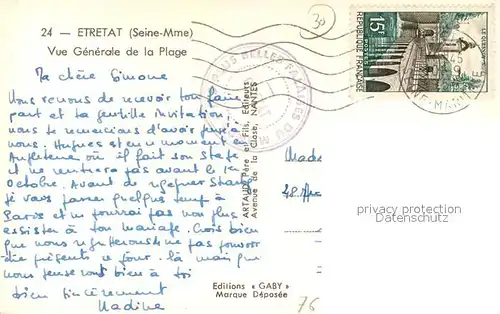 24 — ETRETAT (Seine-Mme)
Vue Générale de la Plage
30
LE QUESNOY
15F
POSTES
REPUBLIQUE FRANÇAISE
PLUS BELLES FALAISES DU M
Ma chère Simone
Nous venons de recevoir ton faire
part et ta gentille invitation
nous te remercions d'avoir pensé à
nous. Hugues est en ce moment en
Angleterre où il fait son stage
et ne rentrera pas avant le 1er
Octobre. Avant de regagner
je vais passer quelque temps à
Paris et ne pourrai pas non plus
assister à ton mariage. Crois bien
que nous regretterons de ne pas pouvoir
être présents ce jour là mais que
nous penserons bien à toi
bien sincèrement
Nadine
ARTAUD Père et Fils, Editeurs
Avenue de la Close, NANTES
Made
28
privacy protection
Datenschutz
Editions « GABY »
Marque Déposée
76